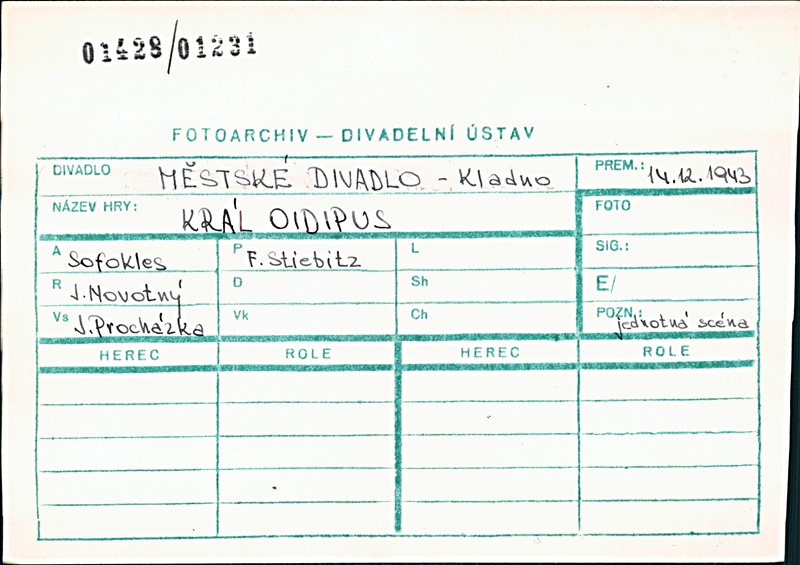 01428/01231
FOTOARCHIV — DIVADELNÍ ÚSTAV
DIVADLO MĚSTSKÉ DIVADLO - Kladno PREM.: 14.12.1943
NÁZEV HRY: KRÁL OIDIPUS FOTO
A Sofokles P F. Stiebitz L SIG.:
R J. Novotný D Sh E/
Vs J. Procházka Vk Ch POZN.: jednotná scéna
HEREC ROLE HEREC ROLE